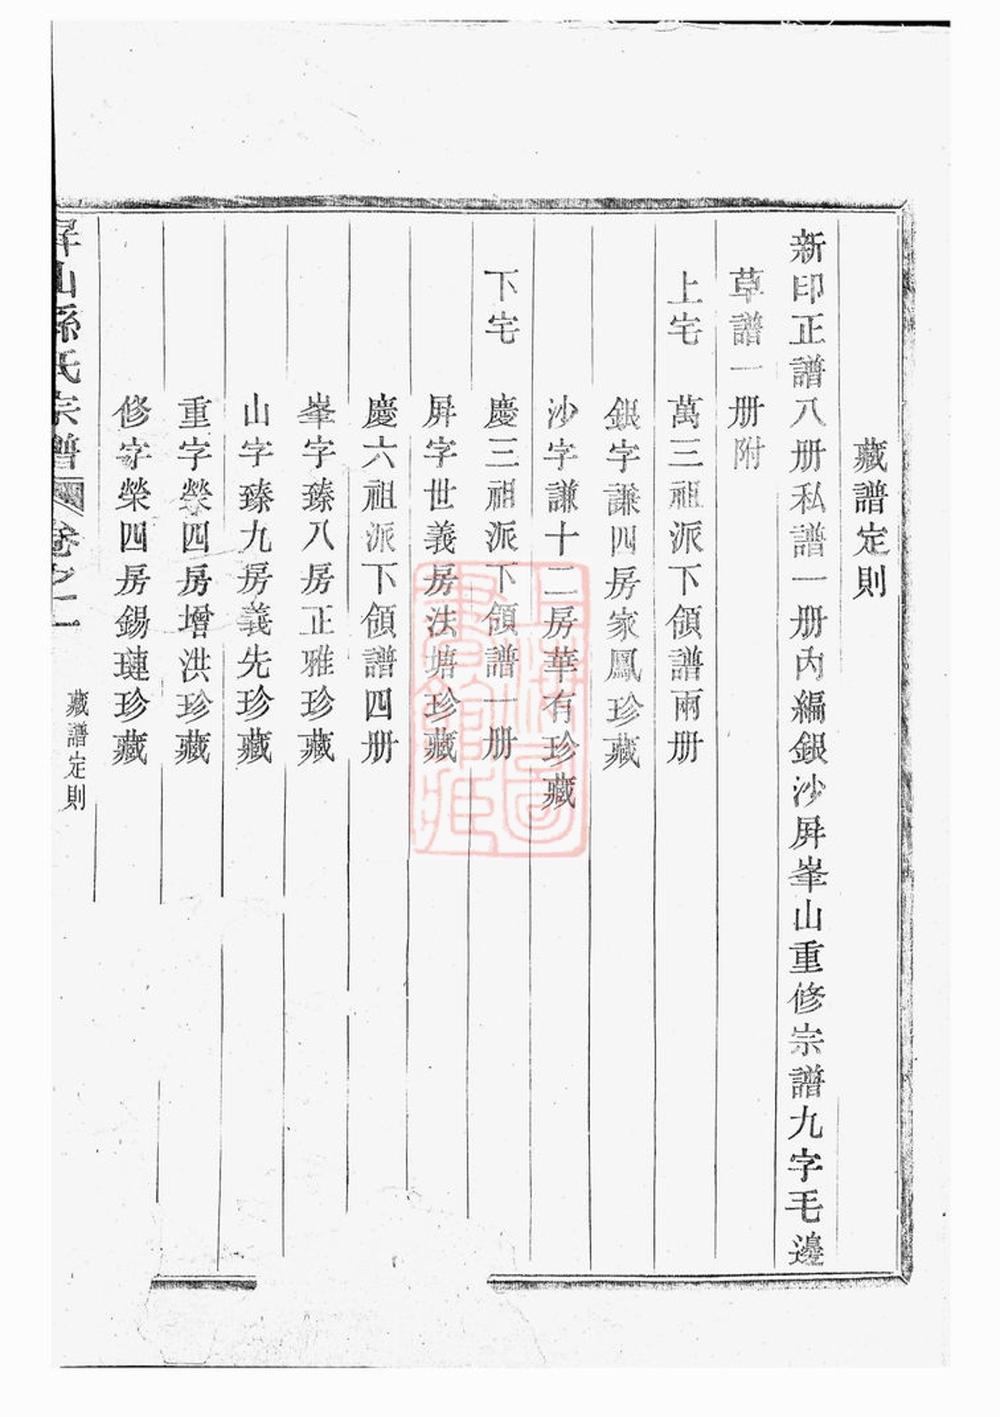 藏譜定則
新印正譜八册私譜一册內編銀沙屏峯山重修宗譜九字毛邊
草譜一册附
上宅　萬三祖派下領譜兩册
銀字謙四房家鳳珍藏
沙字謙十二房華有珍藏
下宅　慶三祖派下領譜一册
屏字世義房法塘珍藏
慶六祖派下領譜四册
峯字臻八房正雅珍藏
山字臻九房義先珍藏
重字榮四房增洪珍藏
修字榮四房錫璉珍藏
屏山孫氏宗譜　卷之一　藏譜定則
上海圖書館藏